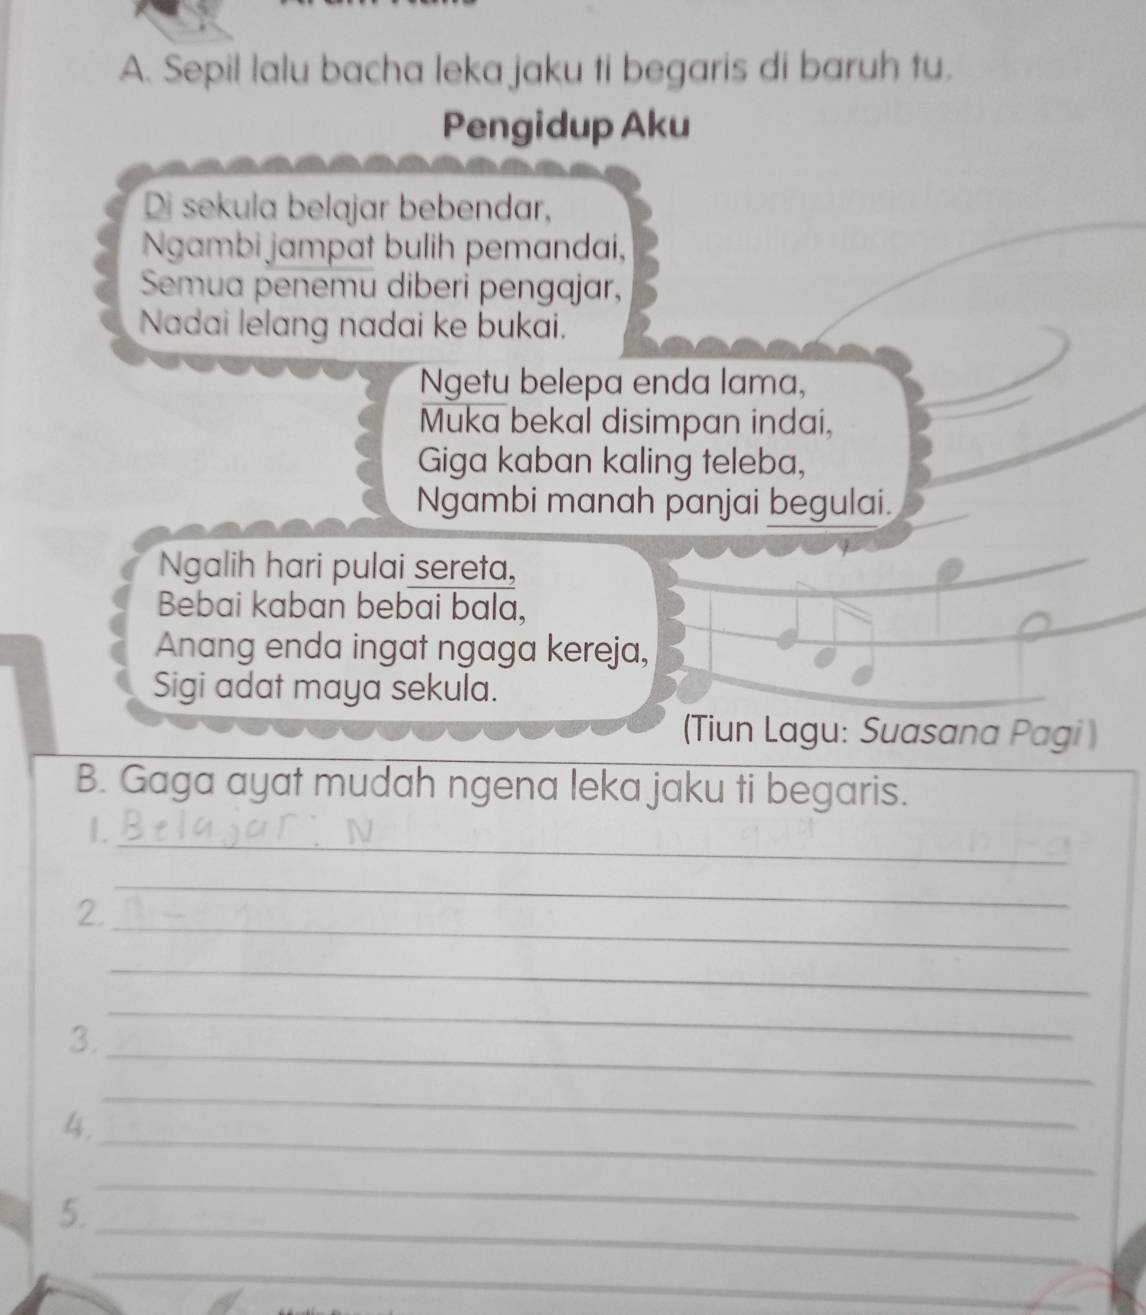 A. Sepil lalu bacha leka jaku ti begaris di baruh tu.
Pengidup Aku
Di sekula belajar bebendar,
Ngambi jampat bulih pemandai,
Semua penemu diberi pengajar,
Nadai lelang nadai ke bukai.
Ngetu belepa enda lama,
Muka bekal disimpan indai,
Giga kaban kaling teleba,
Ngambi manah panjai begulai.
Ngalih hari pulai sereta,
Bebai kaban bebai bala,
Anang enda ingat ngaga kereja,
Sigi adat maya sekula.
(Tiun Lagu: Suasana Pagi)
B. Gaga ayat mudah ngena leka jaku ti begaris.
1. Belajar
2.
3.
4.
5.